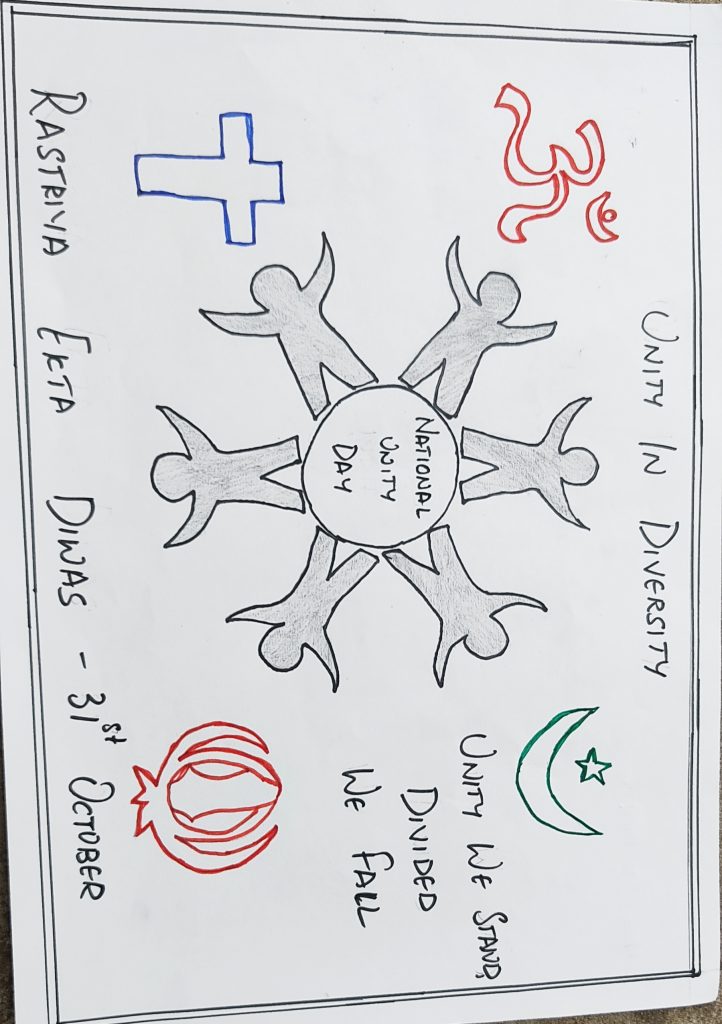 UNITY IN DIVERSITY
NATIONAL
UNITY
DAY
UNITY WE STAND,
DIVIDED
WE FALL
RASTRIYA EKTA DIWAS - 31st OCTOBER